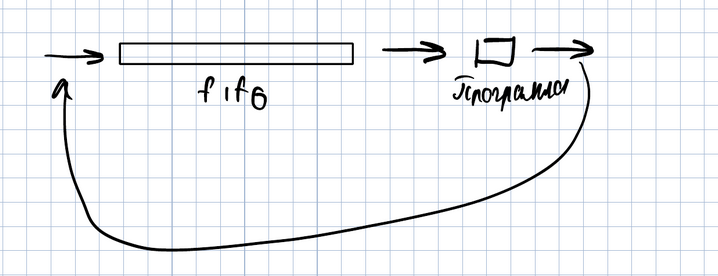 fifo
Программа